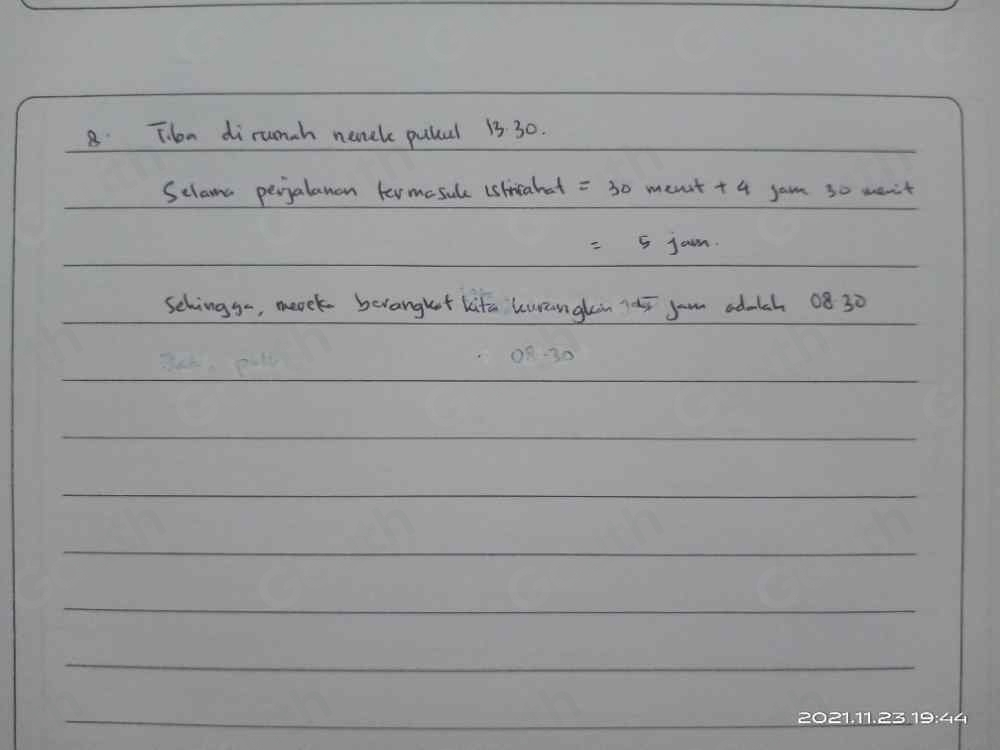 8. Tiba di rumah nenek pukul 13.30.
Selama perjalanan termasuk istirahat = 30 menit + 4 jam 30 menit
= 5 jam.
Sehingga, mereka berangkat kita kurangkan 5 jam adalah 08.30
Jadi, puk
. 08.30
2021.11.23 19:44